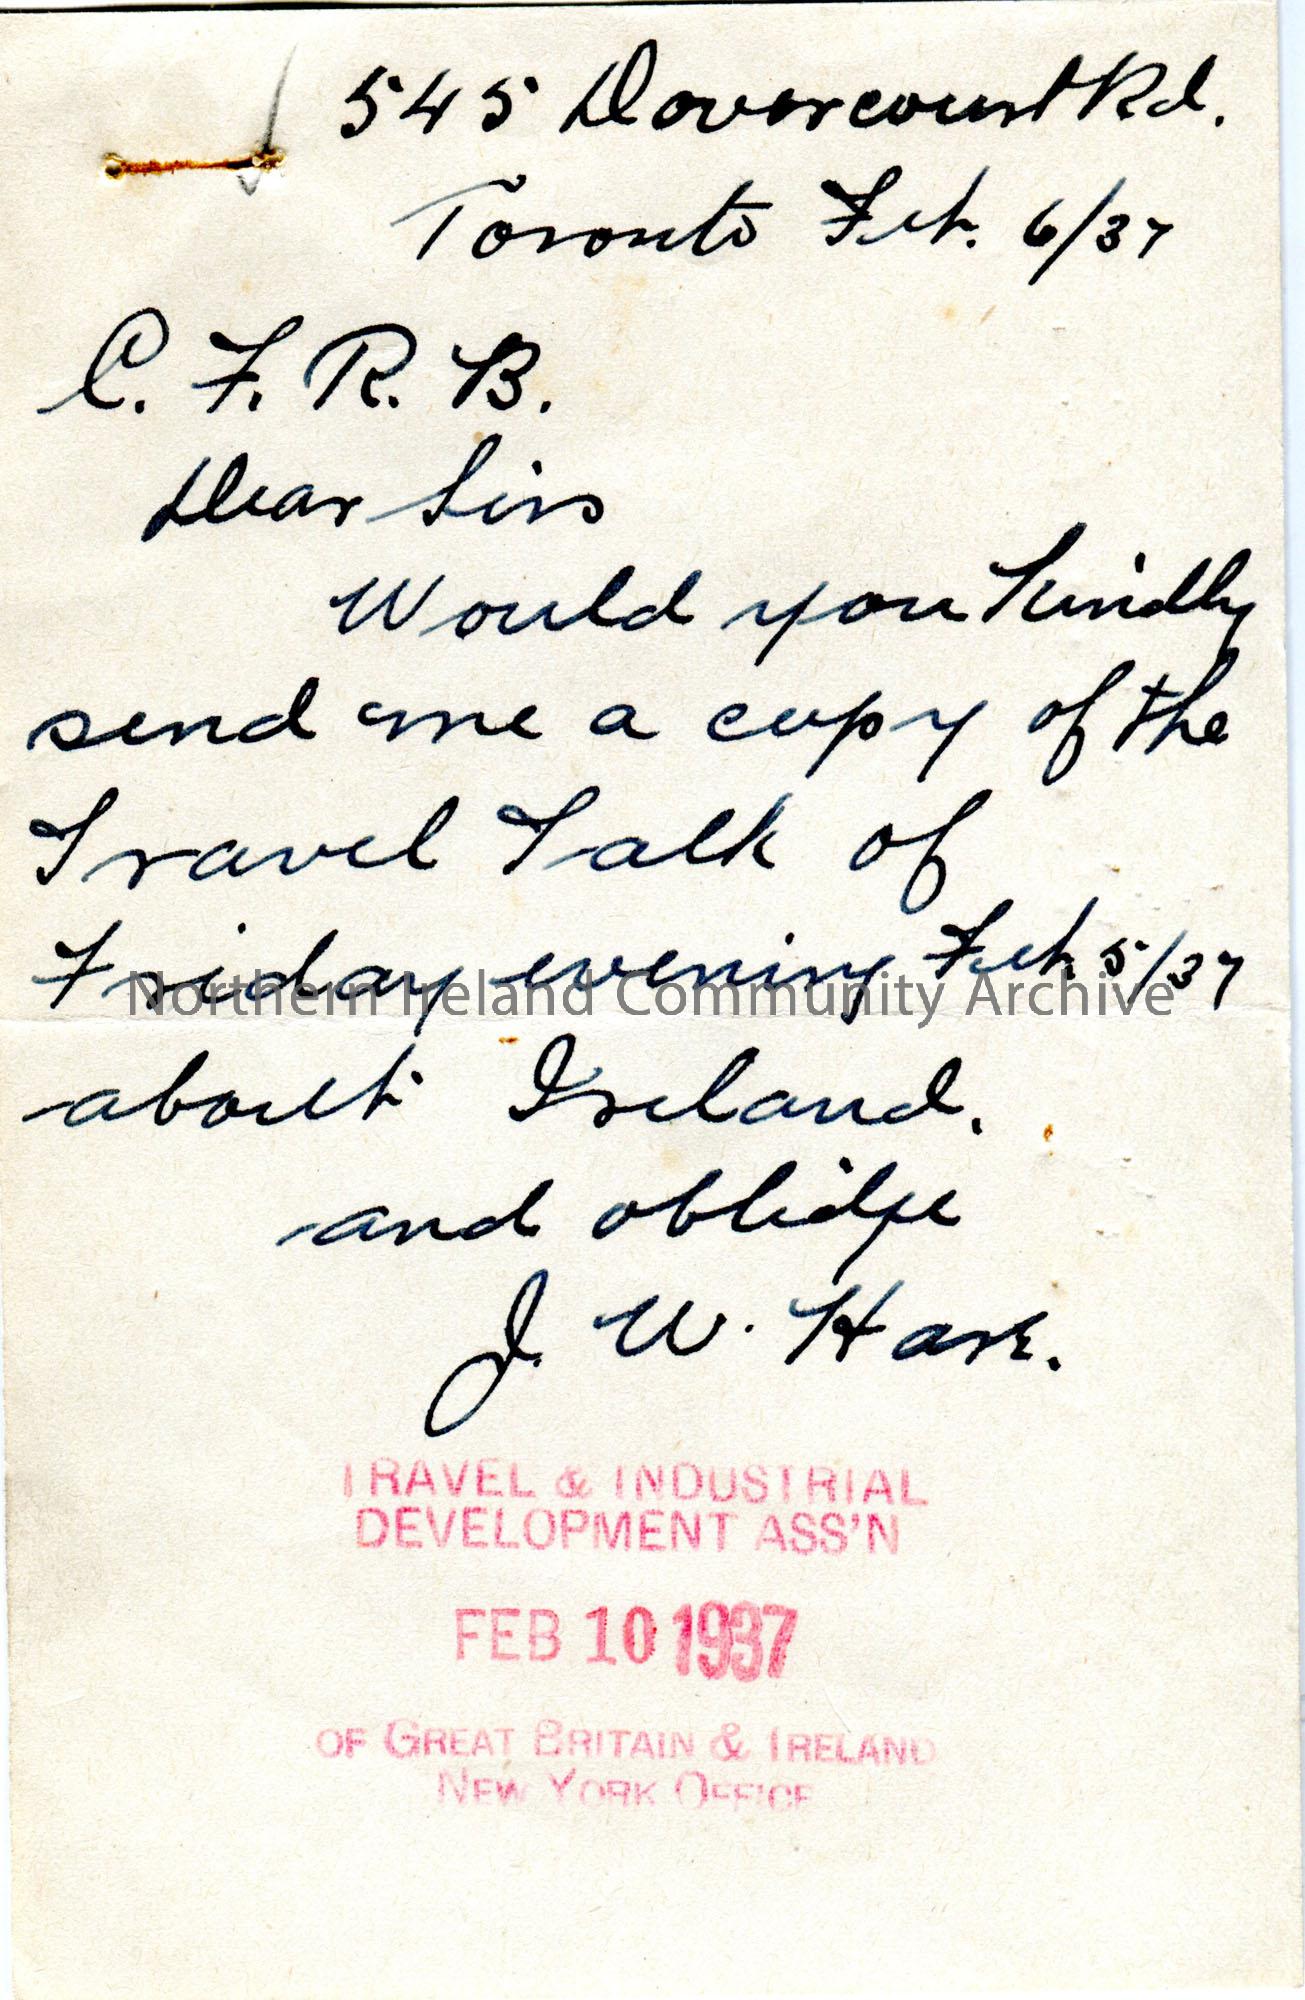 545 Dovercourt Rd.
Toronto Feb. 6/37
C. F. R. B.
Dear Sirs
Would you kindly
send me a copy of the
Travel Talk of
Friday evening Feb 5/37
Northern Ireland Community Archive
about Ireland.
and oblidge
J. W. Hark.
TRAVEL & INDUSTRIAL
DEVELOPMENT ASS'N
FEB 10 1937
OF GREAT BRITAIN & IRELAND
NEW YORK OFFICE